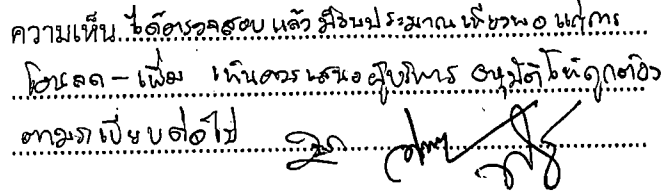 ความเห็น ได้ตรวจสอบแล้ว มีงบประมาณเพียงพอแก่การ
โอนลด - เพิ่ม เห็นควรเสนอผู้บริหาร อนุมัติให้ถูกต้อง
ตามระเบียบต่อไป